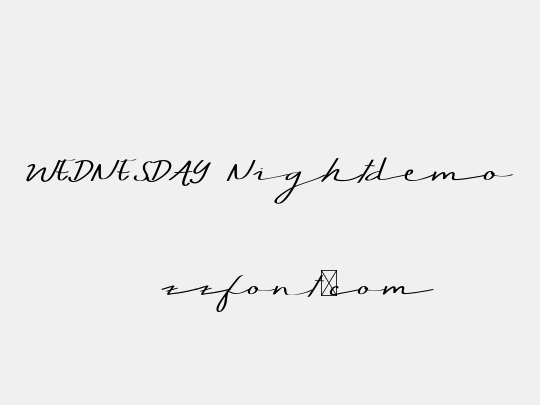 WEDNESDAY Nightdemo
zzfont☒com